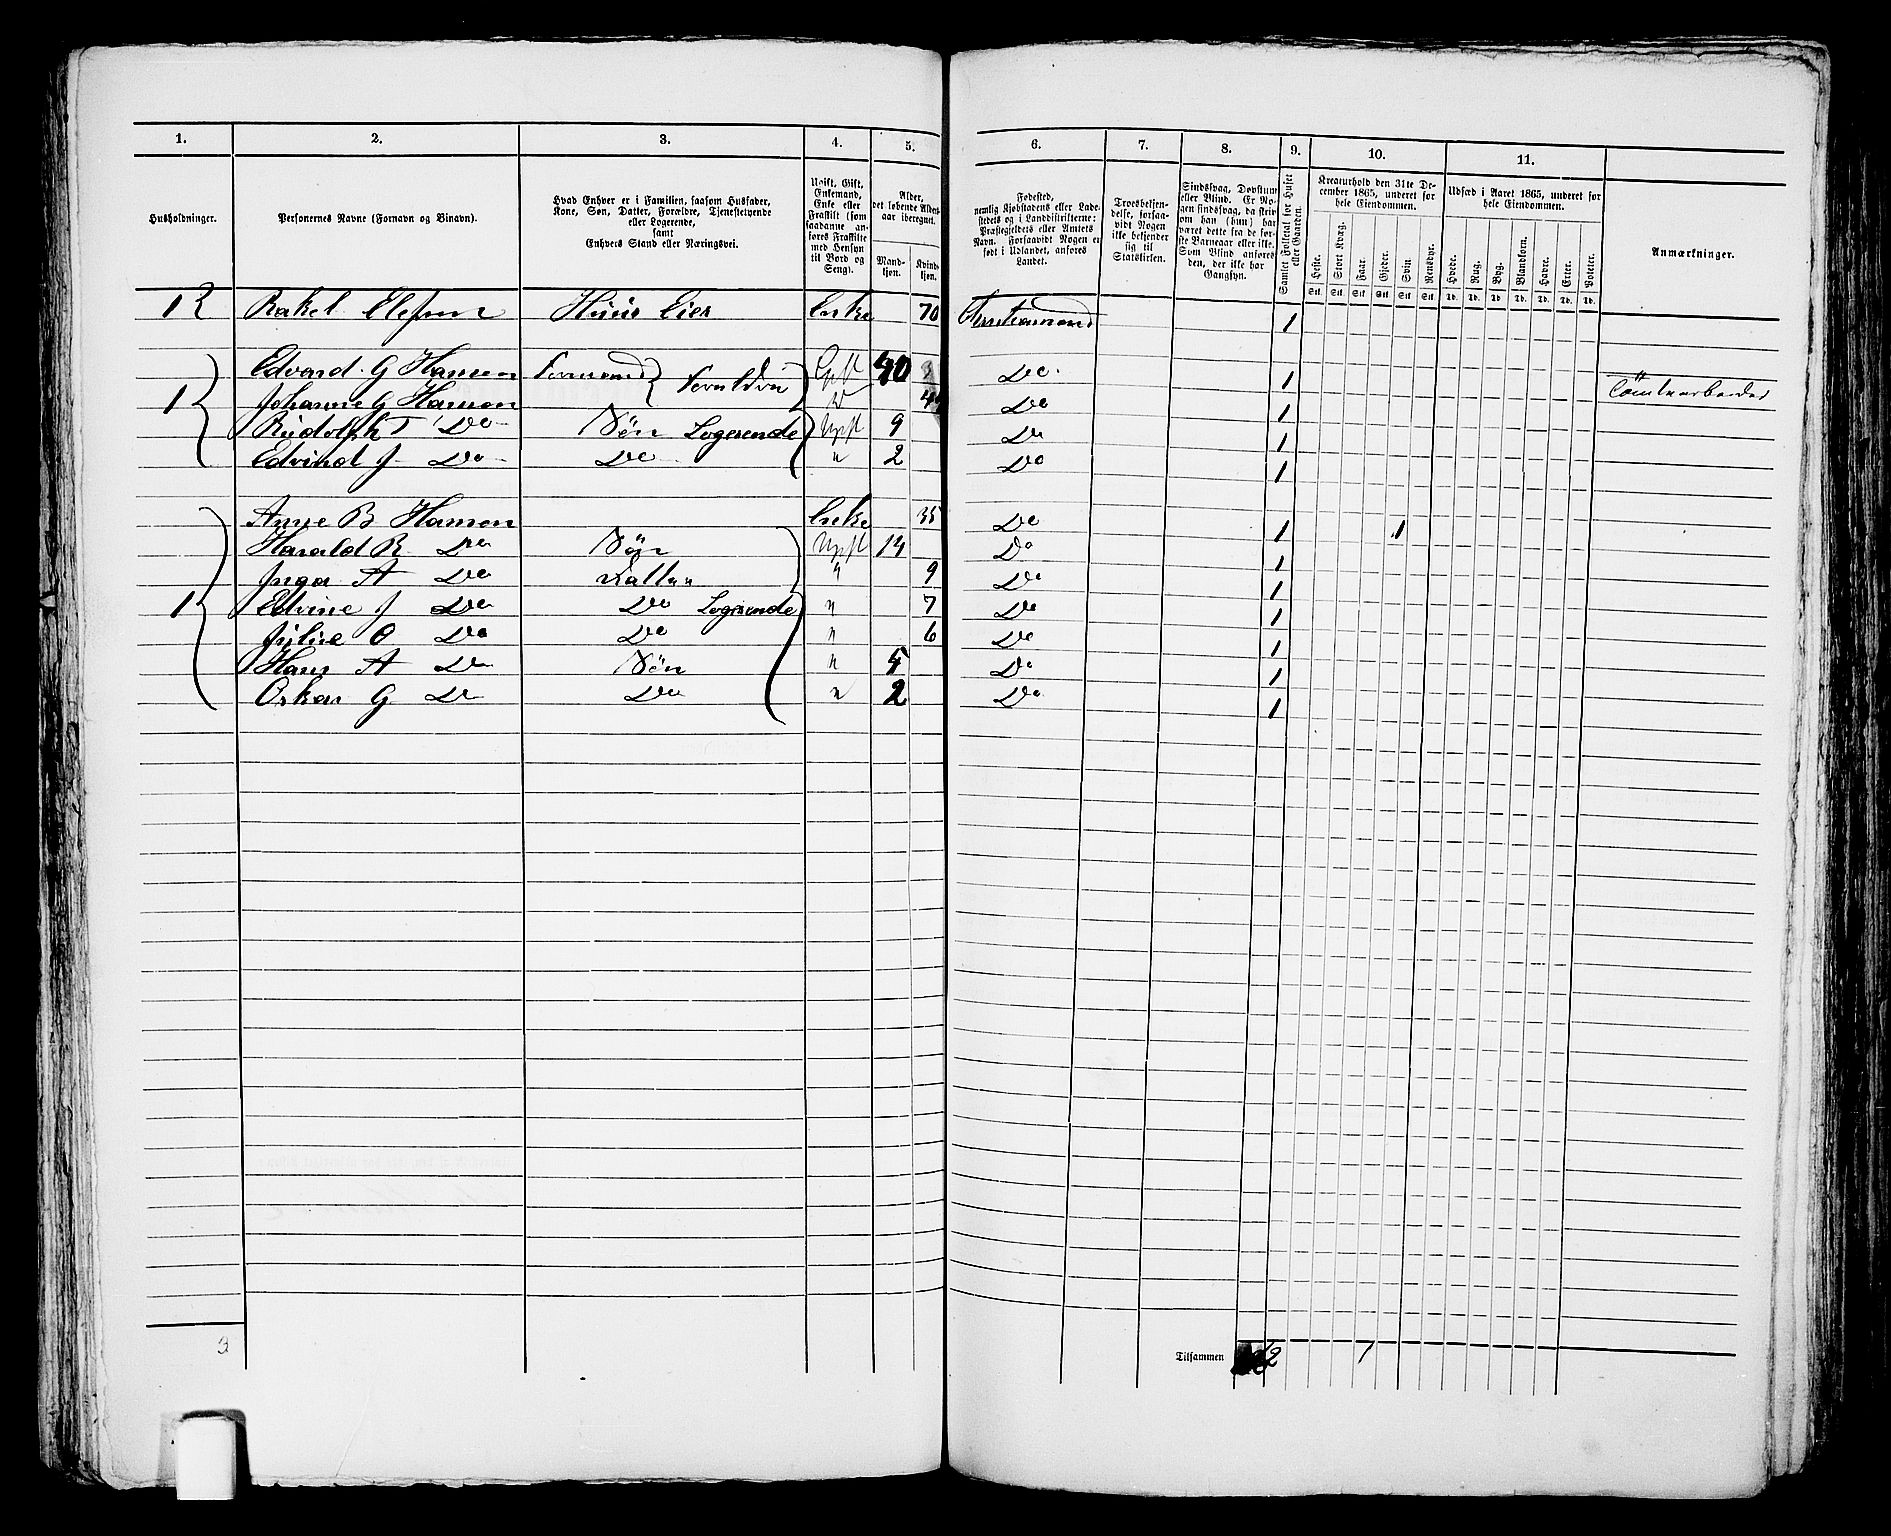 1. 2. 3. 4. 5. 6. 7. 8. 9. 10. 11.
Husholdninger.
Personernes Navne (Fornavn og Binavn).
Hvad Enhver er i Familien, saasom Husfader,
Kone, Søn, Datter, Forældre, Tjenestetyende
eller Logerende,
samt
Enhvers Stand eller Næringsvei.
Ugift, Gift,
Enkemand,
Enke eller
Fraskilt (som
saadanne an-
føres Fraskilte
med Hensyn
til Bord og
Seng).
Alder,
det løbende Alders-
aar iberegnet.
Mand-
kjøn.
Kvind-
kjøn.
Fødested,
nemlig Kjøbstadens eller Lade-
stedets og i Landdistrikterne:
Præstegjeldets eller Amtets
Navn. Forsaavidt Nogen er
født i Udlandet, anføres
Landet.
Troesbekjen-
delse, forsaa-
vidt Nogen
ikke bekjender
sig til
Statskirken.
Sindssvag, Døvstum
eller Blind. Er No-
gen sindssvag, da skriv
om han (hun) har
været dette fra de før-
ste Barneaar eller ikke.
Som Blind anføres
den, der ikke har
Gangsyn.
Samlet Folketal for Huset
eller Gaarden.
Kreaturhold den 31te De-
cember 1865, underet for
hele Eiendommen.
Heste. Stort Kvæg. Faar. Gjeder. Svin. Rensdyr.
Stk. Stk. Stk. Stk. Stk. Stk.
Udsæd i Aaret 1865, underet for
hele Eiendommen.
Hvede. Rug. Byg. Blandkorn. Havre. Erter. Poteter.
Td. Td. Td. Td. Td. Td. Td.
Anmærkninger.
1 Rakel Elefsen Huus Eier Enke 70 Christiansand 1
Edvard G Hansen Gift 40 Do 1
1 Johanne G Hansen Do 1
Rudolph T Do Søn Logerende Ugift 9 Do 1
Edvind J Do Do " 2 Do 1
Anne B Hansen Enke 35 Do 1 1
Harald R Do Søn Ugift 14 Do 1
Inga A Do Datter " 9 Do 1
1 Edvine J Do Do Logerende " 7 Do 1
Juline O Do Do " 6 Do 1
Hans A Do Søn " 5 Do 1
Oskar G Do Do " 2 Do 1
3 Tilsammen 12 1